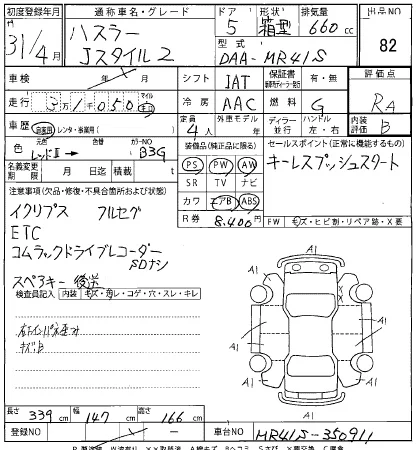 初度登録年月 通称車名・グレード ドア 形状 排気量 出品NO
31年4月 ハスラー Jスタイル2 5 箱型 660 cc 82
型式 DAA-MR41S
車検 年 月 シフト IAT 保証書 有・無 評価点
走行 3万1千050 冷房 AAC 燃料 G RA
車歴 自家用 レンタ・事業用( ) 定員 4人 ディーラー並行 ハンドル 左・右 内装評価 B
色 元色 色替 カラーNO
レッドII → B3G 装備品(純正品に限る) セールスポイント(正常に機能するもの)
名義変更期限 月 日迄 積載 t PS PW AW キーレスプッシュスタート
注意事項(欠品・修復・不具合箇所および状態) SR TV ナビ
イクリプス フルセグ カワ エアB ABS
ETC R券 8,400円 FW キズ・ヒビ割・リペア跡・X要
コムラックドライブレコーダー
SDナシ
スペアキー 後送
検査員記入 内装 キズ・汚レ・コゲ・穴・スレ・キレ
キズ、B
A1 A1
A1 X X A1
A1 A1
A1
長さ 339 cm 幅 147 cm 高さ 166 cm
登録NO 車台NO MR41S-350911